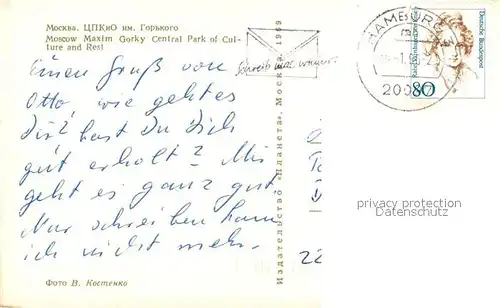 Москва. ЦПКиО им. Горького
Moscow Maxim Gorky Central Park of Cul-
ture and Rest
Einen Gruß von
Otto, wie geht es
dir? hast Du Dich
gut erholt? Mir
geht es ganz gut
Nur schreiben kann
ich nicht mehr.
Фото В. Костенко
Издательство «Планета». Москва. 1969
Schreib mal wieder
HAMBURG
200
Deutsche Bundespost
80
22
privacy protection
Datenschutz